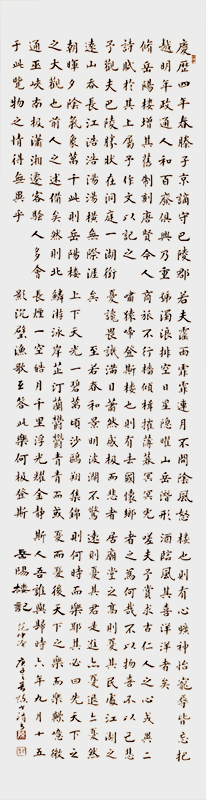 慶歷四年春滕子京謫守巴陵郡
越明年政通人和百廢俱興乃重
脩岳陽樓增其舊制刻唐賢今人
詩賦於其上屬予作文以記之
予觀夫巴陵勝狀在洞庭一湖銜
遠山吞長江浩浩湯湯橫無際涯
朝暉夕陰氣象萬千此則岳陽樓
之大觀也前人之述備矣然則北
通巫峽南極瀟湘遷客騷人多會
于此覽物之情得無異乎
若夫霪雨霏霏連月不開陰風怒
號濁浪排空日星隱曜山岳潛形
商旅不行檣傾楫摧薄暮冥冥虎
嘯猿啼登斯樓也則有去國懷鄉
憂讒畏譏滿目蕭然感極而悲者
矣 至若春和景明波瀾不驚
上下天光一碧萬頃沙鷗翔集錦
鱗游泳岸芷汀蘭鬱鬱青青而或
長煙一空皓月千里浮光耀金靜
影沉璧漁歌互答此樂何極登斯
樓也則有心曠神怡寵辱皆忘把
酒臨風其喜洋洋者矣
嗟夫予嘗求古仁人之心或異二
者之為何哉不以物喜不以己悲
居廟堂之高則憂其民處江湖之
遠則憂其君是進亦憂退亦憂然
則何時而樂耶其必曰先天下之
憂而憂後天下之樂而樂歟噫微
斯人吾誰與歸時六年九月十五
岳陽樓記 范仲淹